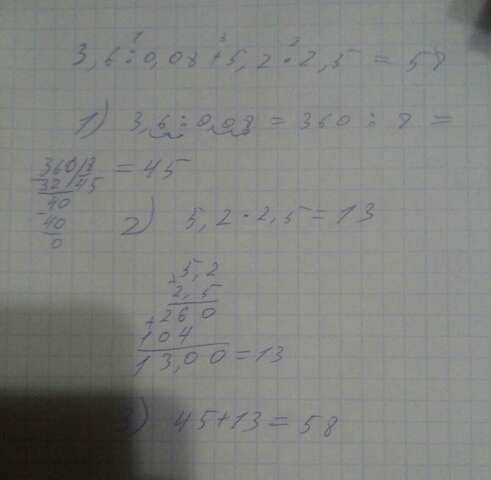 1 3 2
3,6 : 0,08 + 5,2 · 2,5 = 58
1) 3,6 : 0,08 = 360 : 8 =
= 45
360 8
- 32 45
40
- 40
0
2) 5,2 · 2,5 = 13
× 5,2
2,5
+ 260
104
13,00 = 13
3) 45 + 13 = 58